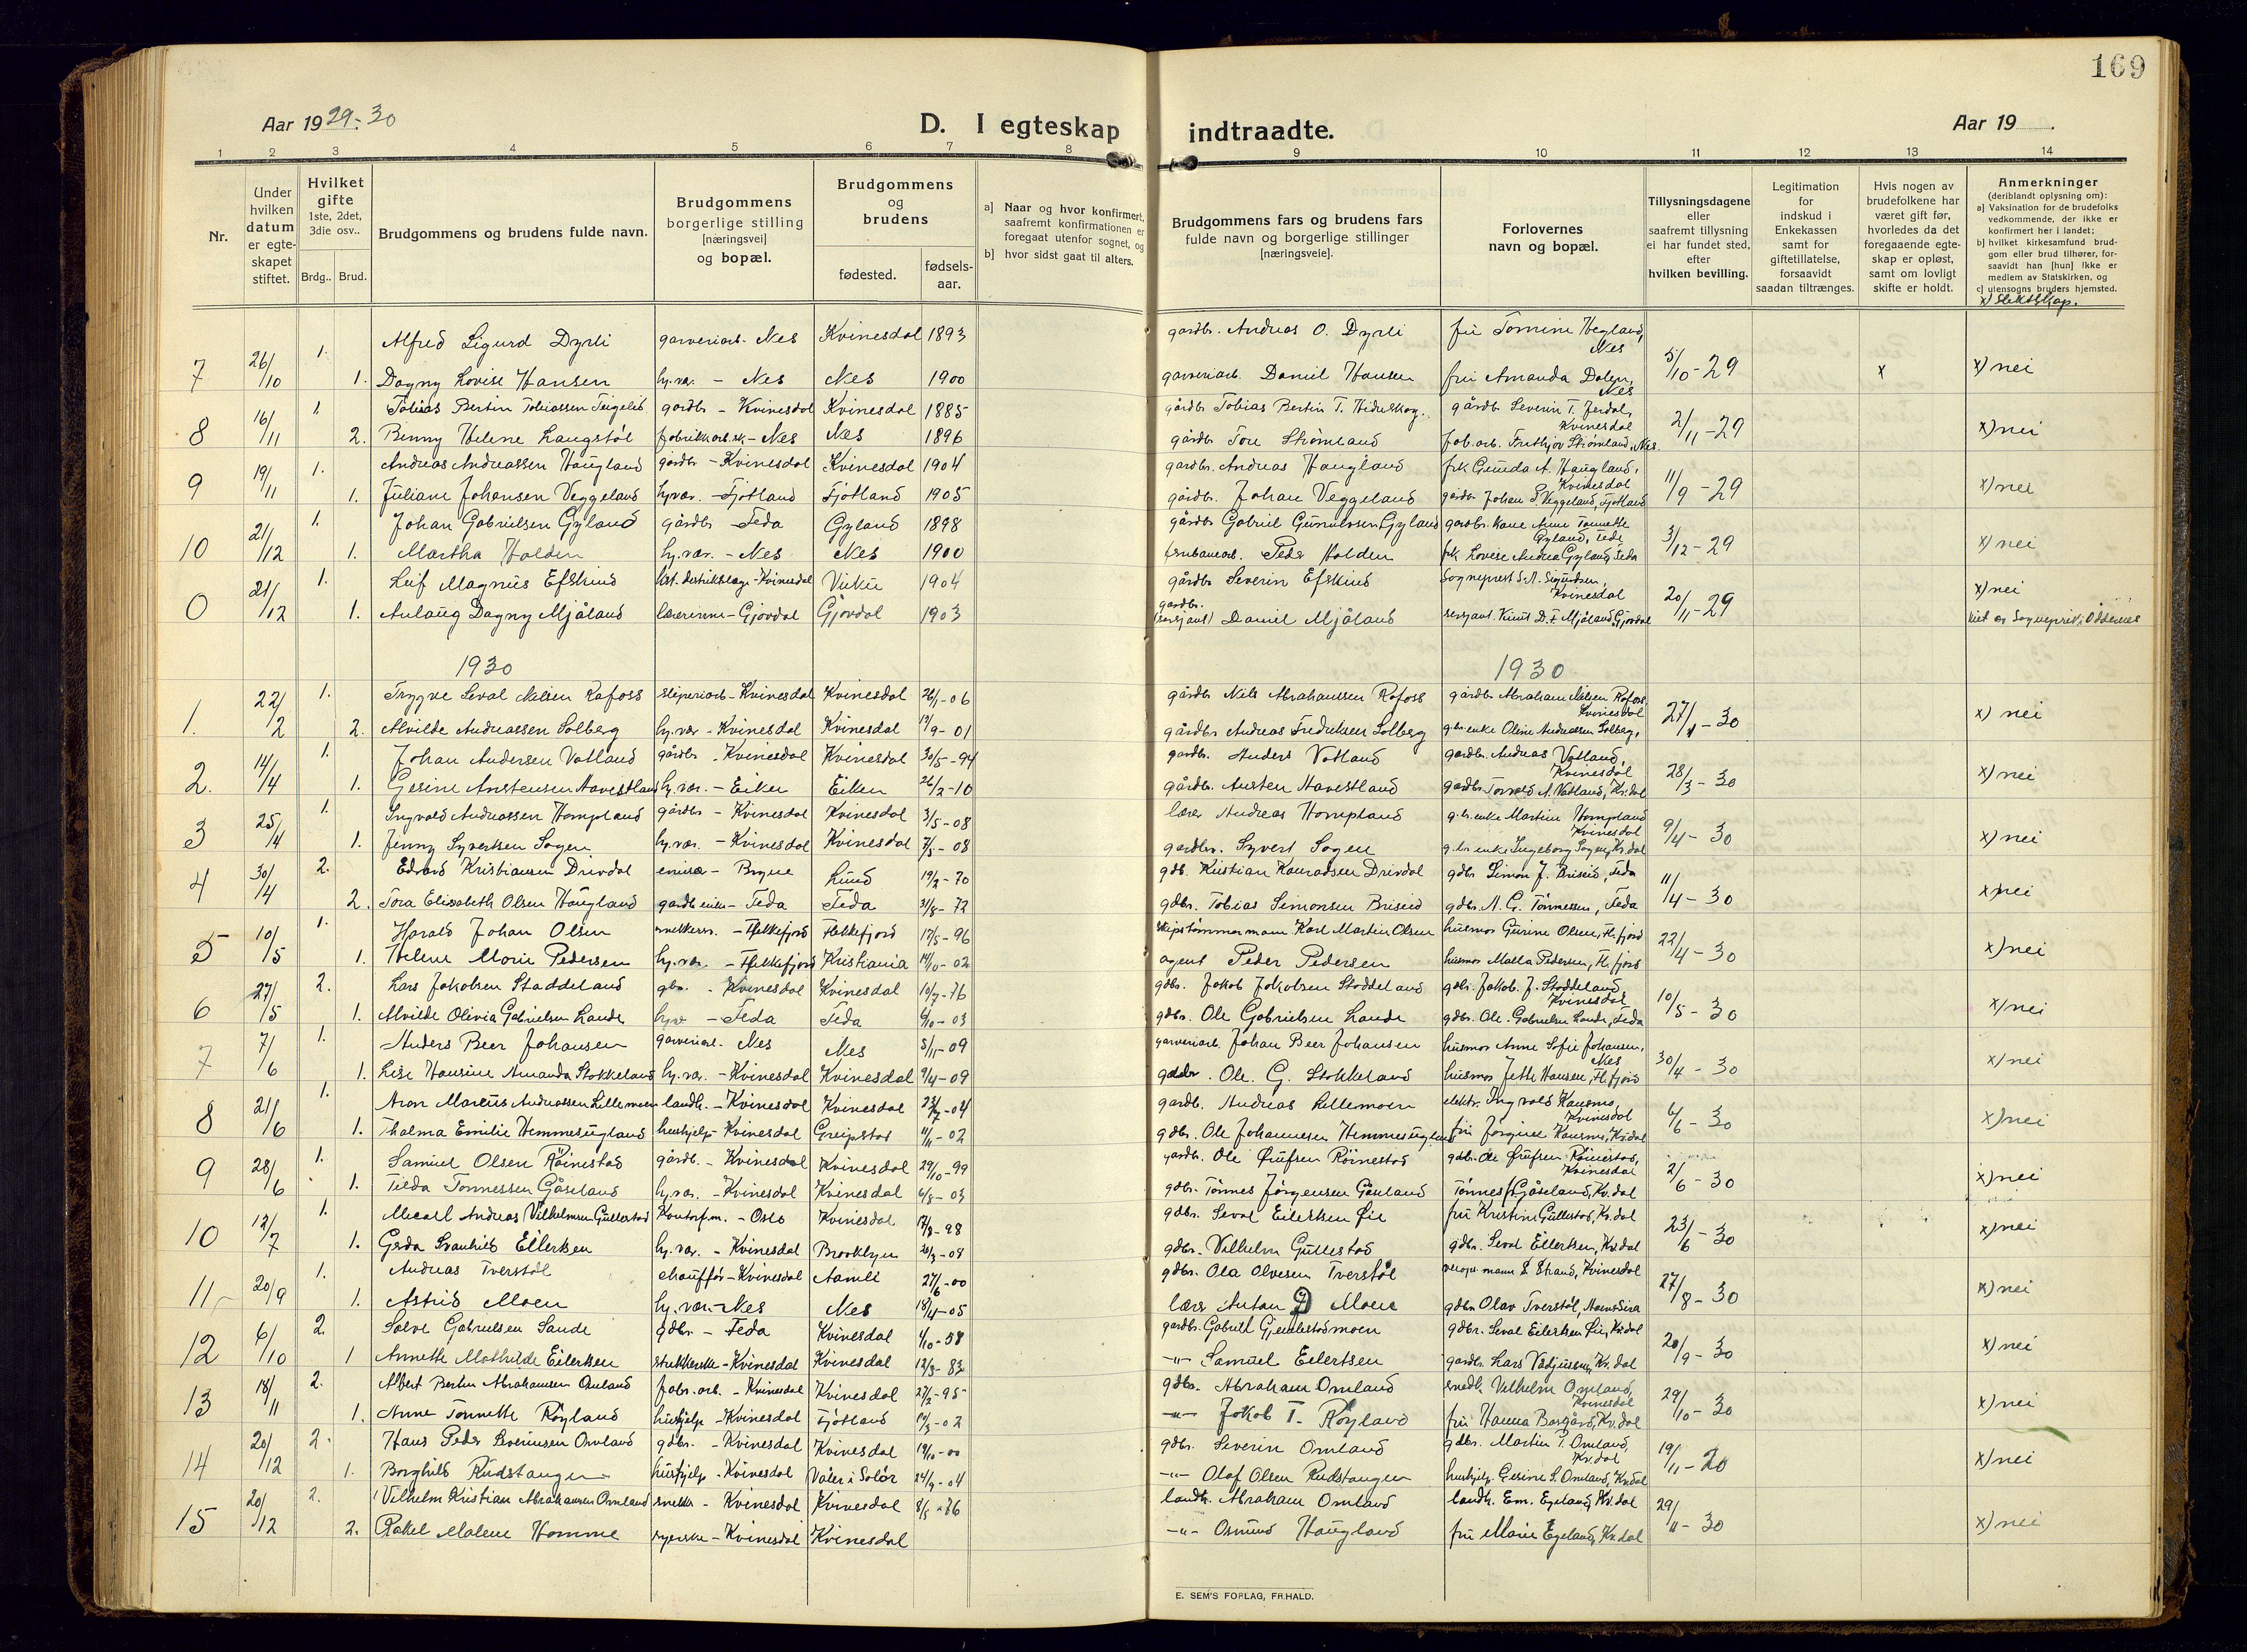 169
Aar 1929-30
D. I egteskap indtraadte.
Aar 19
1 2 3 4 5 6 7 8 9 10 11 12 13 14
Nr.
Under hvilken datum er egte-skapet stiftet.
Hvilket gifte 1ste, 2det, 3die osv..
Brdg.. Brud.
Brudgommens og brudens fulde navn.
Brudgommens borgerlige stilling [næringsvei] og bopæl.
Brudgommens og brudens
fødested. fødsels-aar.
a] Naar og hvor konfirmert, saafremt konfirmationen er foregaat utenfor sognet, og
b] hvor sidst gaat til alters.
Brudgommens fars og brudens fars fulde navn og borgerlige stillinger [næringsveie].
Forlovernes navn og bopæl.
Tillysningsdagene eller saafremt tillysning ei har fundet sted, efter hvilken bevilling.
Legitimation for indskud i Enkekassen samt for giftetillatelse, forsaavidt saadan tiltrænges.
Hvis nogen av brudefolkene har været gift før, hvorledes da det foregaaende egte-skap er opløst, samt om lovligt skifte er holdt.
Anmerkninger (deriblandt oplysning om):
a] Vaksination for de brudefolks vedkommende, der ikke er konfirmert her i landet;
b] hvilket kirkesamfund brud-gom eller brud tilhører, for-saavidt han [hun] ikke er medlem av Statskirken, og
c] utensogns bruders hjemsted.
x) Slektskap.
7 26/10 1. Alfred Sigurd Dyrli garveriarb. Nes Kvinesdal 1893 gardbr. Andreas O. Dyrli fru Tomine Hegland, Nes 5/10-29 x x) nei
1. Dagny Lovise Hansen hj.vær. - Nes Nes 1900 garveriarb. Daniel Hansen fru Amanda Dalen, Nes
8 16/11 1. Tobias Bertin Tobiassen gardbr - Kvinesdal Kvinesdal 1885 gårdbr Tobias Bertin T. gårdbr Severin T. Jerdal, Kvinesdal 2/11-29 x) nei
2. Benny Helene Langstøl fabrikkarb.sk - Nes Nes 1896 gårdbr Tore Strømland fab.arb. Frithjov Strømland, Nes.
9 19/11 1. Andreas Andreassen Haugland gårdbr - Kvinesdal Kvinesdal 1904 gardbr. Andreas Haugland frk Gunda A. Haugland, Kvinesdal 11/9-29 x) nei
1. Juliane Johansen Veggeland hj.vær. - Fjotland Fjotland 1905 gårdbr. Johan Veggeland gårdbr Johan S. Veggeland, Fjotland
10 21/12 1. Johan Gabrielsen Gyland gårdbr - Feda Gyland 1898 gårdbr Gabriel Gunnarsen Gyland gardbr. Kane Anne Tonnette Gyland, Feda 3/12-29 x) nei
1. Martha Holden hj.vær. - Nes Nes 1900 Peder Holden frk Lovise Andrea Gyland, Feda
0 21/12 1. Leif Magnus Efskind - Kvinesdal 1904 gårdbr Severin Efskind Sogneprest S. A. Sigurdsen, Kvinesdal 20/11-29 x) nei
1. Aslaug Dagny Mjåland lærerinne - Gjøvdal Gjøvdal 1903 gardbr. (sersjant) Daniel Mjåland sersjant Knut D. Mjåland, Gjøvdal
1930 1930
1. 22/2 1. Trygve Seval Nilsen Rafoss sliperiarb - Kvinesdal Kvinesdal 26/1-06 gårdbr Nils Abrahamsen Rafoss gårdbr Abraham Nilsen Rafoss, Kvinesdal 27/1-30 x) nei
2. Alvilde Andreassen Solberg hj.vær - Kvinesdal Kvinesdal 19/9-01 gårdbr Andreas Fredriksen Solberg g.br.enke Oline Andreassen Solberg,
2. 14/4 1. Johan Andersen Vatland gårdbr - Kvinesdal Kvinesdal 30/5-94 gardbr. Anders Vatland gardbr. Andreas Vatland, Kvinesdal 28/3-30 x) nei
1. Gesine Anstensen Havestland hj.vær. - Eiken Eiken 26/2-10 gårdbr. Austen Havestland gardbr. Torvald A. Vatland, Kv.dal
3 25/4 1. Ingvald Andreassen Hompland gårdbr - Kvinesdal Kvinesdal 3/5-08 lærer Andreas Hompland g.br.enke Martine Hompland Kvinesdal 9/4-30 x) nei
1. Jenny Syvertsen Sagen hj.vær. - Kvinesdal Kvinesdal 7/5-08 gardbr. Syvert Sagen g.br enke Ingeborg Sagen, Kv.dal
4 30/4 2. Edvard Kristiansen Drivdal - Bryne Lund 19/2-70 gdb. Kristian Konradsen Drivdal gdbr Simon J. Briseid, Feda 11/4-30 x) nei
2. Tora Elisabeth Olsen Haugland gardb enke - Feda Feda 31/8-72 gdbr. Tobias Simonsen Briseid gdbr. A. G. Tønnessen, Feda
5 10/5 1. Harald Johan Olsen - Flekkefjord Flekkefjord 17/5-96 Skipstømmermann Karl Martin Olsen husmor Gurine Olsen, Fl.fjord 22/4-30 x) nei
1. Helene Marie Pedersen hj.vær. - Flekkefjord Kristiania 14/10-02 agent Peder Pedersen husmor Malla Pedersen, Fl.fjord
6 27/5 2. Lars Jakobsen Staddeland gbr. - Kvinesdal Kvinesdal 10/7-76 gdbr. Jakob Jakobsen Staddeland gdbr. Jakob J. Staddeland, Kvinesdal 10/5-30 x) nei
1. Alvilde Olivia Gabrielsen Lande hj.v - Feda Feda 6/10-03 gdbr. Ole Gabrielsen Lande gdbr. Ole Gabrielsen Lande, Feda
7 7/6 1. Anders Beer Johansen garveriarb. Nes Nes 5/11-09 garveriarb. Johan Beer Johansen husmor Anne Sofie Johansen, Nes 30/4-30 x) nei
1. Lise Hansine Amanda Stokkeland hj.vær. - Kvinesdal Kvinesdal 9/4-09 gardbr. Ole. G. Stokkeland husmor Jette Hansen, Fl.fjord
8 21/6 1. Aron Marcus Andreassen Lillemoen landb. - Kvinesdal Kvinesdal -04 gardb. Andreas Lillemoen elektr. Ingvald Kausmo, Kvinesdal 6/6-30 x) nei
1. Thalma Emilie Hemmesugland hushjelp - Kvinesdal Greipstad 11/11-02 gdbr. Ole Johannesen Hemmesugland fru Jorgine Kausmo, Kv.dal
9 28/6 1. Samuel Olsen Röinestad gårdb. - Kvinesdal Kvinesdal 29/10-99 gardb. Ole Röinestad gdbr. Ole Röinestad, Kvinesdal 2/6-30 x) nei
1. Tilda Tønnessen Gåseland hj.vær. - Kvinesdal Kvinesdal 6/8-03 gdbr. Tönnes Jörgensen Gåseland Tönnes J. Gåseland, Kv.dal
10 12/7 1. Micael Andreas Vilhelmsen Gullestad Kontorf.m. - Oslo Kvinesdal 17/8-98 gdbr. Seval Eilertsen Øie fru Kristine Gullestad, Kv.dal 23/6-30 x) nei
1. Gerda Svanhild Eilertsen hj.vær. - Kvinesdal Brooklyn 20/3-08 gdbr. Vilhelm Gullestad gdbr. Seval Eilertsen, Kv.dal
11 20/9 1. Andreas Tverstöl chauffør - Kvinesdal Aamli 27/6-00 gdbr. Ola Olvesen Tverstöl L. Strand, Kvinesdal 27/8-30 x) nei
1. Astrid Moen hj.vær. - Nes Nes 18/4-05 lærer Anton Moen gdbr. Olav Tverstöl,
12 6/10 2. Salve Gabrielsen Sande gdbr. - Feda Kvinesdal 4/10-58 gardb. Gabriel Gjemlestadmoen gdbr. Seval Eilertsen Øie, Kv.dal 20/9-30 x) nei
1 Annette Mathilde Eilertsen strikkerske - Kvinesdal Kvinesdal 12/3-82 -"- Samuel Eilertsen gardb. Lars Kv.dal
13 18/11 2. Albert Bertin Abrahamsen Omland fabr.arb. - Kvinesdal Kvinesdal 27/2-95 gdbr. Abraham Omland snedk Vilhelm Omland, Kvinesdal 29/10-30 x) nei
1. Anne Tonnette Röyland hushjelp - Kvinesdal Fjotland 19/3-02 -"- Jakob T. Röyland fru Hanna Kv.dal
14 20/12 2. Hans Peder Severinsen Omland gdbr. - Kvinesdal Kvinesdal 19/10-00 gdbr. Severin Omland gdbr. Martin T. Omland, Kv.dal 19/11-20 x) nei
1. Borghild Rudstangen hushjelp - Kvinesdal Våler i Solör 24/9-04 -"- Olaf Olsen Rudstangen hushjelp. Gesine S. Omland, Kv.dal
15 20/12 2. Vilhelm Kristian Abrahamsen Omland snekker - Kvinesdal Kvinesdal 8/5-76 landb. Abraham Omland landb. Em. Egeland, Kv.dal 29/11-30 x) nei
2. Rakel Malene Homme syerske - Kvinesdal Kvinesdal -"- Osmund Haugland fru Marie Egeland, Kv.dal
E. SEM'S FORLAG, FR.HALD.